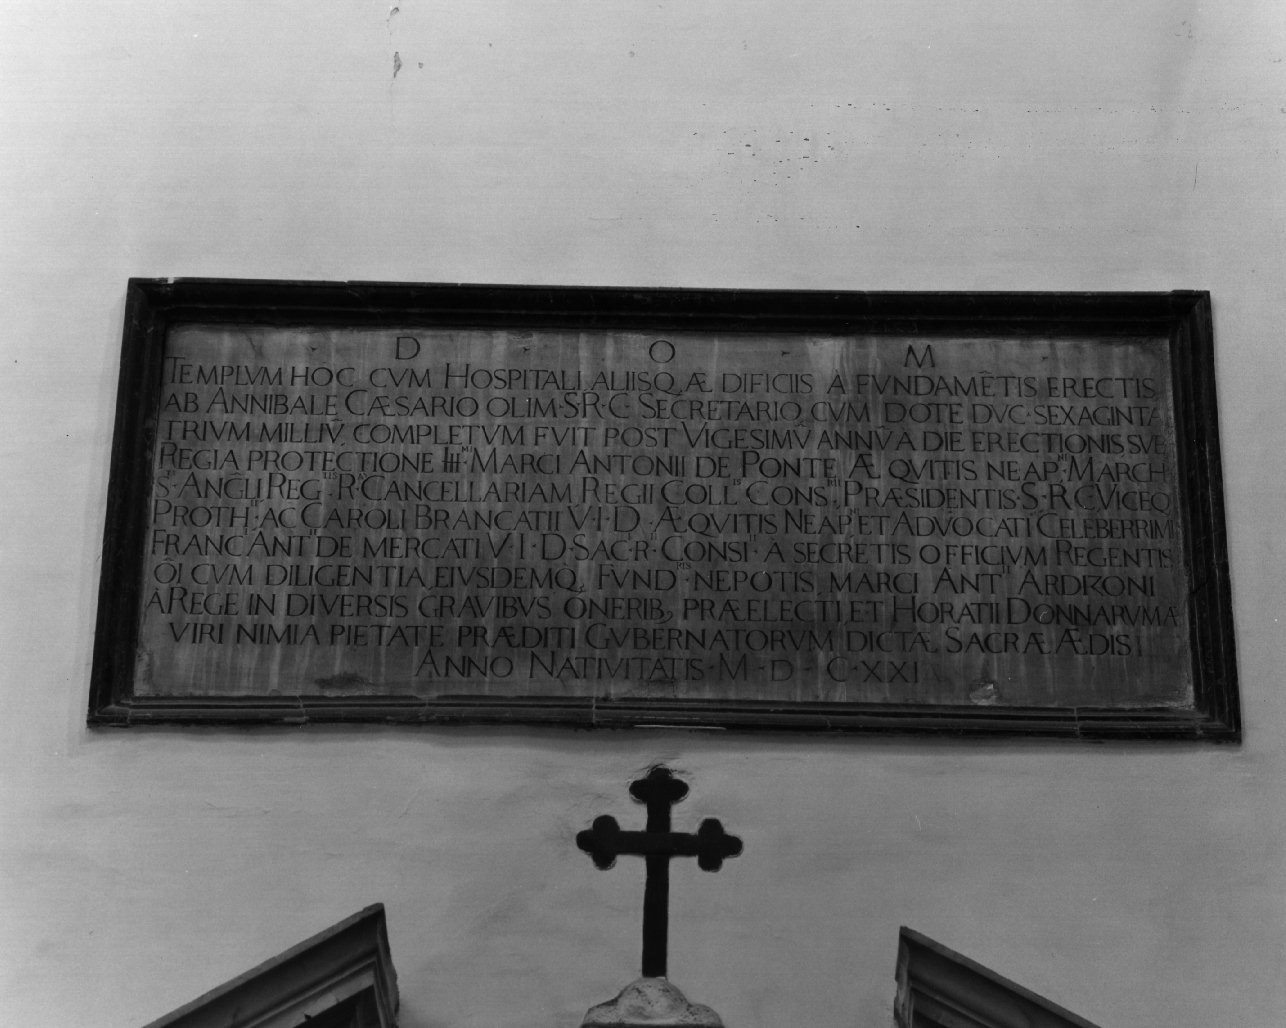 D O M
TEMPLVM HOC CVM HOSPITALI ALIISQ ÆDIFICIIS A FVNDAMĒTIS ERECTIS
AB ANNIBALE CÆSARIO OLIM S·R·C·SECRETARIO CVM DOTE DVC·SEXAGINTA
TRIVM MILLIV COMPLETVM FVIT POST VIGESIMV ANNV A DIE ERECTIONIS SVE
REGIA PROTECTIONE III MARCI ANTONII DE PONTE ÆQVITIS NEAP MARCH
S·ANGLI REG CANCELLARIAM REGII COLL CONS PRÆSIDENTIS S·R·C·VICEQ
PROTH AC CAROLI BRANCATII V·I·D ÆQVITIS NEAP ET ADVOCATI CELEBERRIMI
FRANC ANT DE MERCATI V·I·D S·A·C·R CONSI A SECRETIS OFFICIVM REGENTIS
OI CVM DILIGENTIA EIVSDEMQ FVND NEPOTIS MARCI ANT ARDIZZONII
A REGE IN DIVERSIS GRAVIBVS ONERIB PRÆELECTI ET HORATII DONNARVMA
VIRI NIMIA PIETATE PRÆDITI GVBERNATORVM DICTÆ SACRÆ ÆDIS·
ANNO NATIVITATIS M D C·XXI